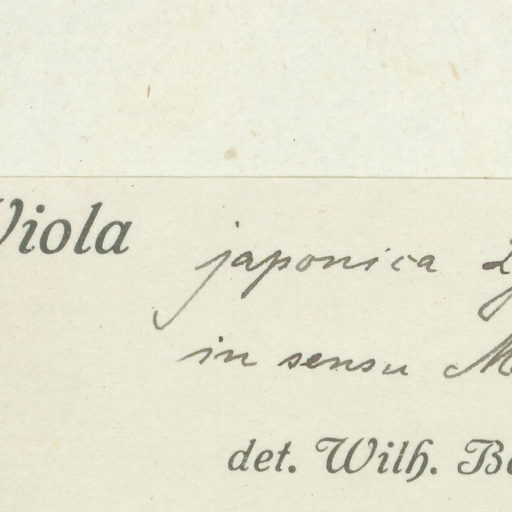 Viola japonica
in sensu
det. Wilh.